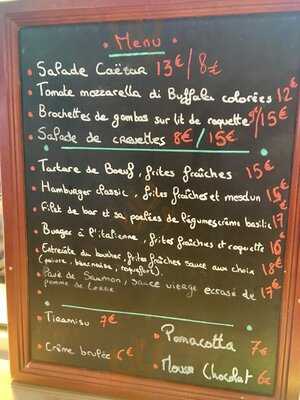 • Menu •
• Salade Caëzar 13€ / 8€
• Tomate mozzarella di Buffala colorées 12€
• Brochettes de gambas sur lit de roquette 9€/15€
• Salade de crevettes 8€/15€
• Tartare de Boeuf, frites fraîches 15€
• Hamburger classic, frites fraîches et mesclun 15€
• Filet de bar et sa poêlées de légumes crème basilic 17
• Burger à l'italienne, frites fraîches et roquette 16€
• Entrecôte du boucher, frites fraîches sauce aux choix 18€
(poivre, bearnaise, roquefort).
• Pavé de Saumon, sauce vierge écrasé de 17€
pomme de terre
• Tiramisu 7€
• Panacotta 7€
• Crème brulée 6€
• Mousse Chocolat 6€